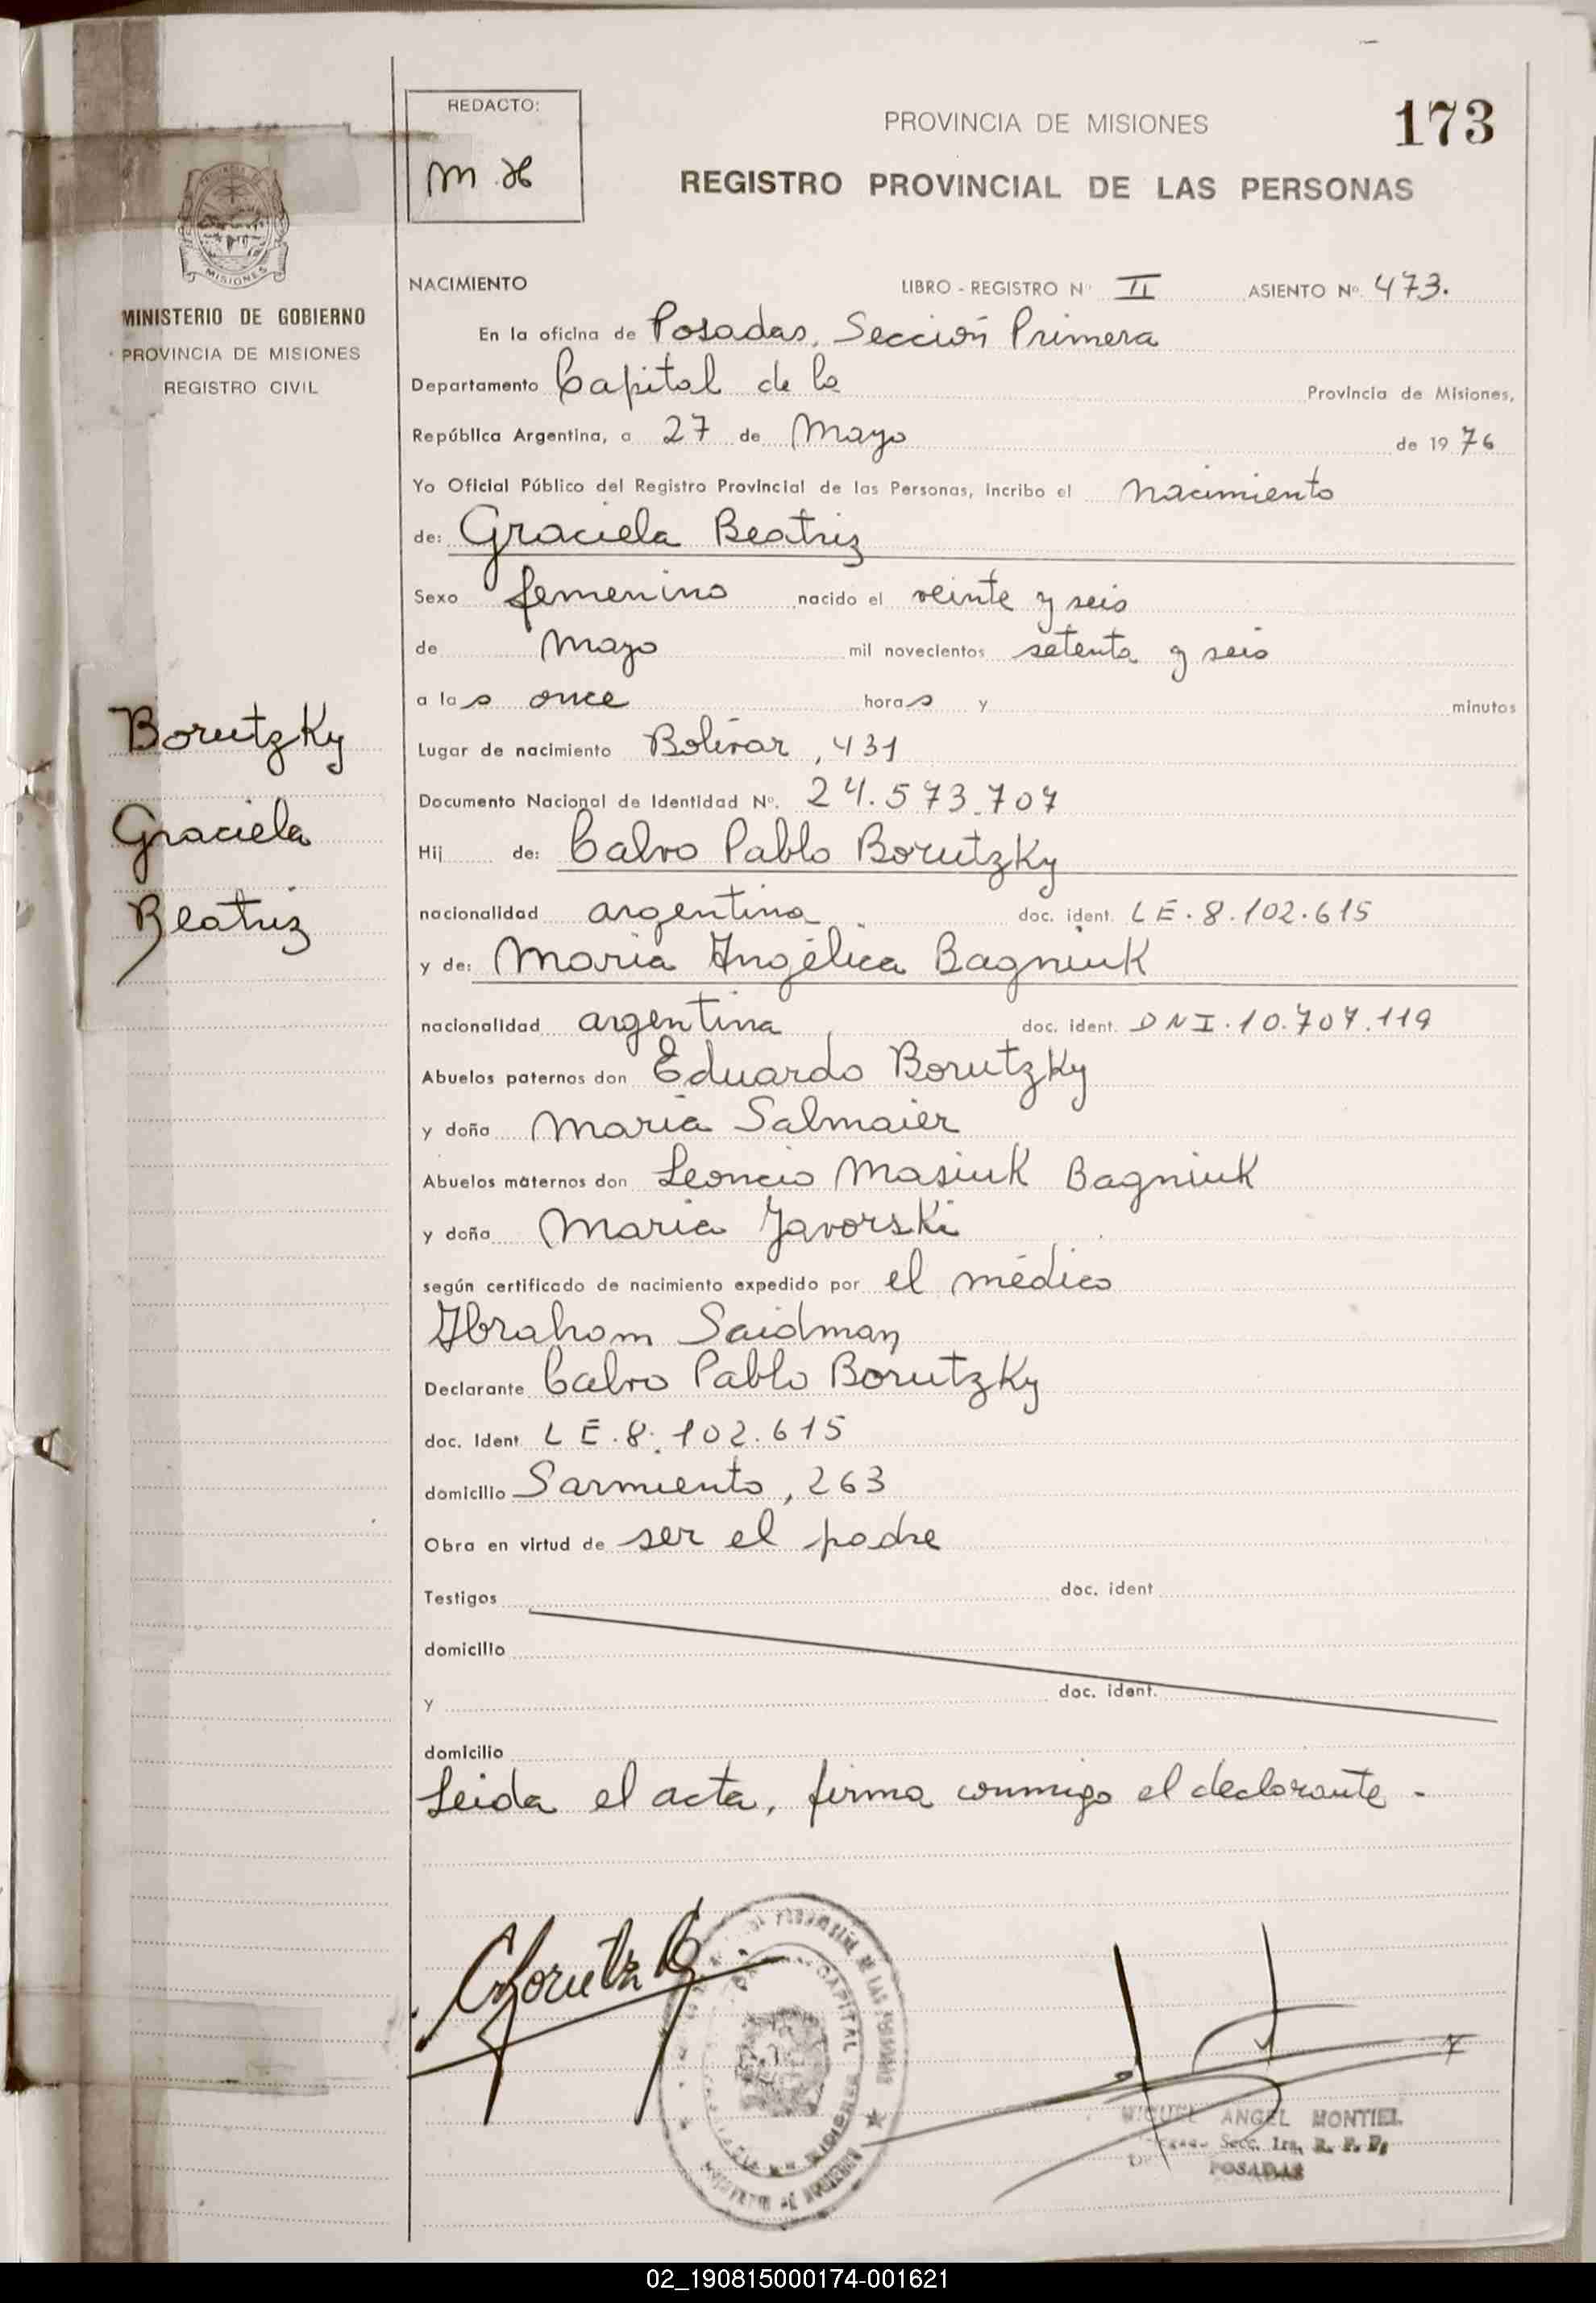 REDACTO:
M H
PROVINCIA DE MISIONES
173
REGISTRO PROVINCIAL DE LAS PERSONAS
MISIONES
MINISTERIO DE GOBIERNO
PROVINCIA DE MISIONES
REGISTRO CIVIL
NACIMIENTO LIBRO - REGISTRO Nº II ASIENTO Nº 473.
En la oficina de Posadas, Sección Primera
Departamento Capital de la Provincia de Misiones,
República Argentina, a 27 de Mayo de 1976
Yo Oficial Público del Registro Provincial de las Personas, incribo el nacimiento
de: Graciela Beatriz
Sexo femenino nacido el veinte y seis
de Mayo mil novecientos setenta y seis
a las once horas y minutos
Borutzky
Graciela
Beatriz
Lugar de nacimiento Bolívar, 431
Documento Nacional de Identidad Nº. 24.573.707
Hij de: Calvo Pablo Borutzky
nacionalidad argentina doc. ident. LE.8.102.615
y de: Maria Angélica Bagniuk
nacionalidad argentina, doc. ident. DNI.10.707.119
Abuelos paternos don Eduardo Borutzky
y doña Maria Salmaier
Abuelos maternos don Leoncio Masiuk Bagniuk
y doña Maria Javorski
según certificado de nacimiento expedido por el médico
Abraham Saidman
Declarante Calvo Pablo Borutzky
doc. Ident. LE.8.102.615
domicilio Sarmiento, 263
Obra en virtud de ser el padre
Testigos doc. ident
domicilio
y doc. ident.
domicilio
Leida el acta, firma conmigo el declarante.
CBorutzky
CAPITAL
MIGUEL ANGEL MONTIEL
Secc. 1ra. R. P. P.
POSADAS
02_190815000174-001621